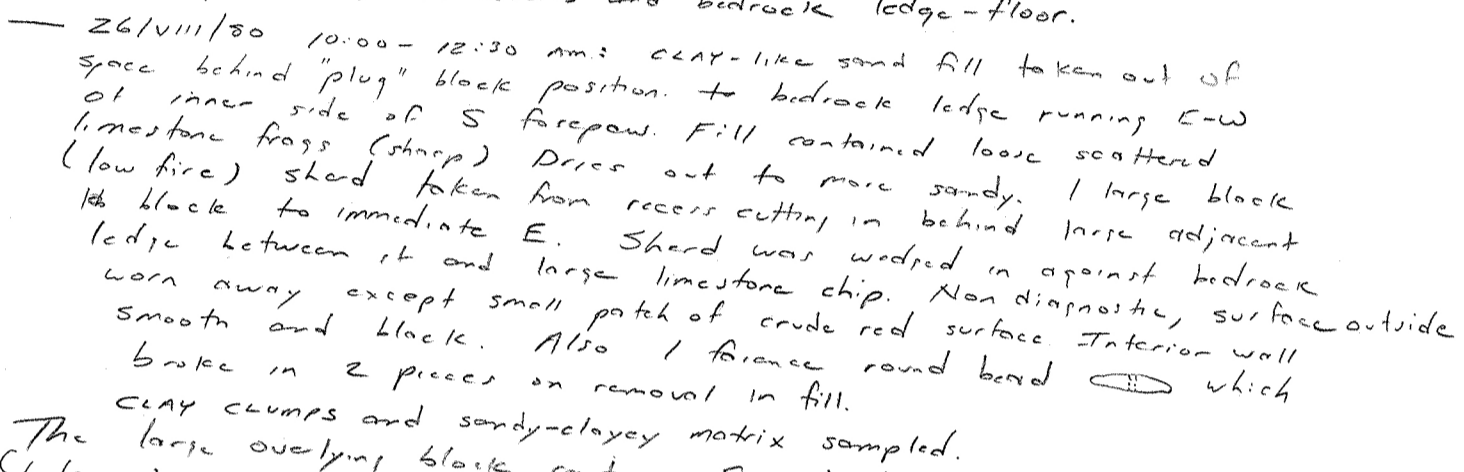 and bedrock ledge-floor.
— 26/VIII/80 10:00 - 12:30 am: CLAY-like sand fill taken out of
space behind "plug" block position. to bedrock ledge running E-W
at inner side of S forepaw. Fill contained loose scattered
limestone frags (sharp) Dries out to more sandy. 1 large black
(low fire) sherd taken from recess cutting in behind large adjacent
block to immediate E. Sherd was wedged in against bedrock
ledge between it and large limestone chip. Non diagnostic, surface outside
worn away except small patch of crude red surface. Interior wall
smooth and black. Also 1 faience round bead which
broke in 2 pieces on removal in fill.
CLAY CLUMPS and sandy-clayey matrix sampled.
The large overlying block